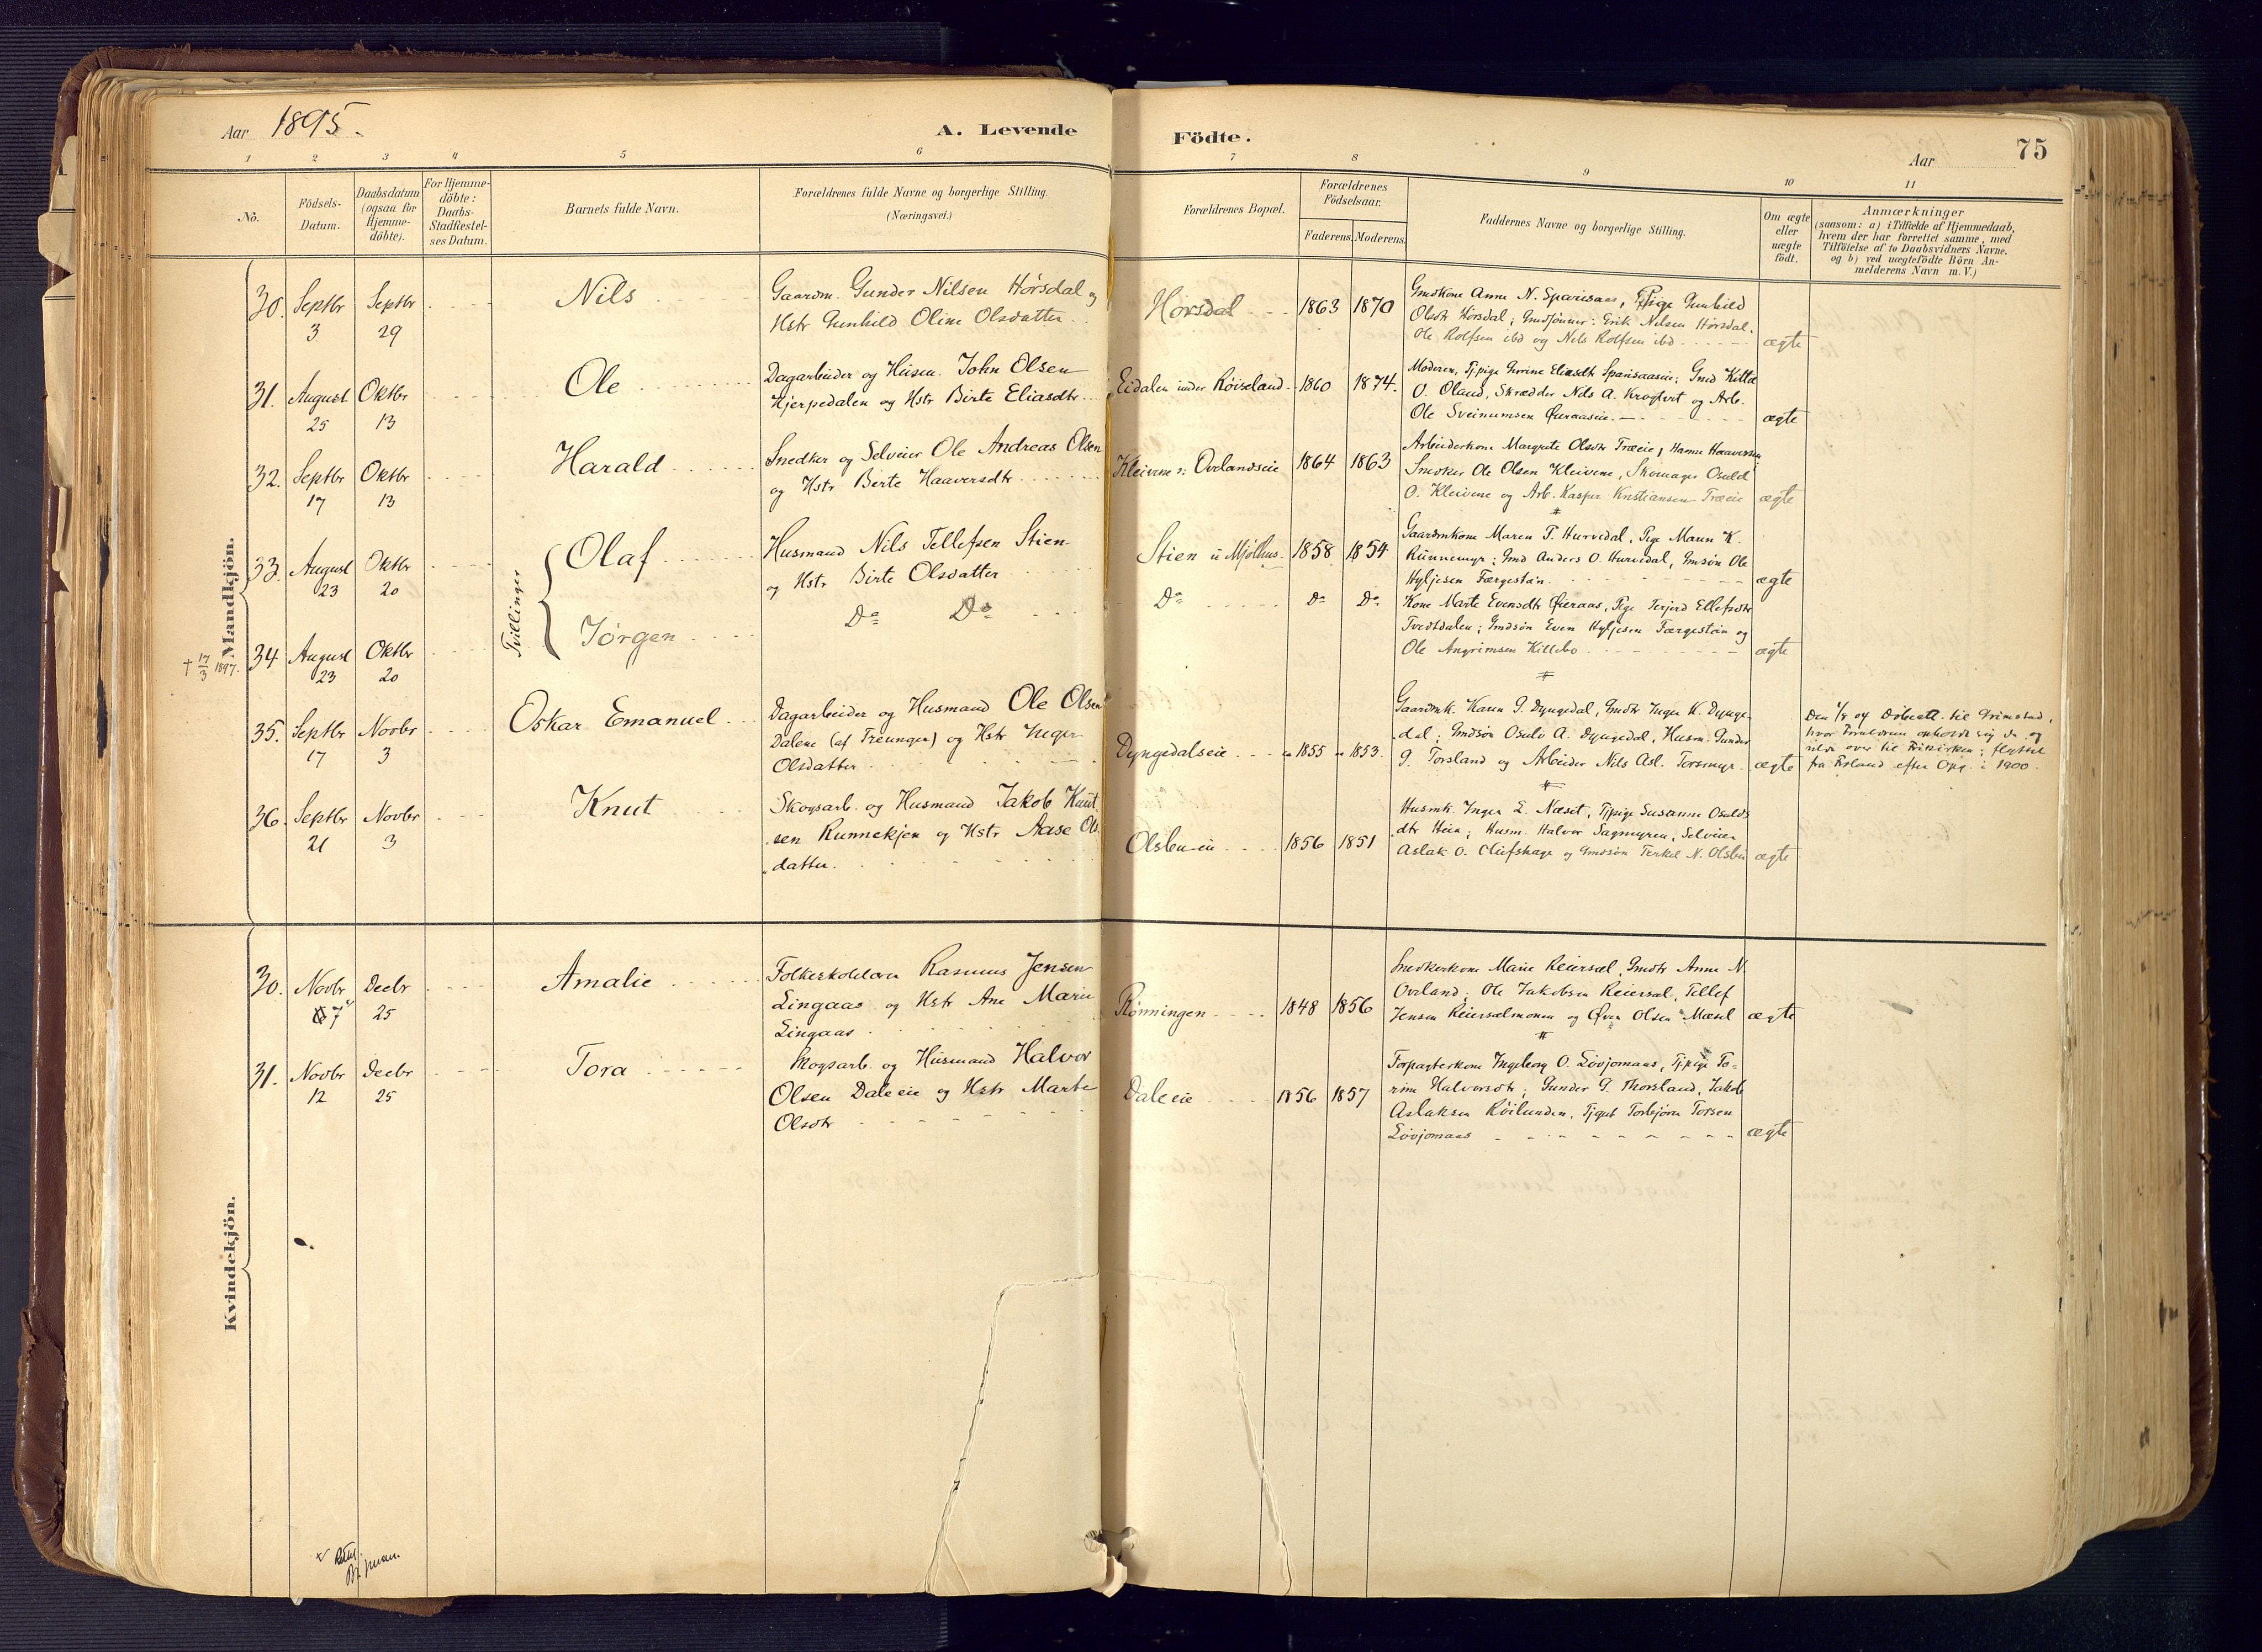 Aar 1895.
A. Levende Födte.
Aar
75
1 2 3 4 5 6 7 8 9 10 11
No.
Födsels-Datum.
Daabsdatum (ogsaa for Hjemme-döbte).
For Hjemme-döbte: Daabs-Stadfæstel-ses Datum.
Barnets fulde Navn.
Forældrenes fulde Navne og borgerlige Stilling.
(Næringsvei.)
Forældrenes Bopæl.
Forældrenes Födselsaar.
Faderens. Moderens.
Faddernes Navne og borgerlige Stilling.
Om ægte eller uægte födt.
Anmærkninger
(saasom: a) i Tilfælde af Hjemmedaab,
hvem der har forrettet samme, med
Tilföielse af to Daabsvidners Navne.
og b) ved uægtefödte Börn An-
melderens Navn m. V.)
Mandkjön.
30. Septbr 3 Septbr 29 Nils
Gaardm. Gunder Nilsen Hørsdal og
Hstr Gunhild Oline Olsdatter
Hørsdal 1863 1870
Gmdkone Anne N. Sparsaas, Pige Gunhild
Olsdtr Hørsdal; Gmdsønner: Erik Nilsen Hørsdal.
Ole Rolfsen ibd og Nils Rolfsen ibd ægte
31. August 25 Oktbr 13 Ole
Dagarbeider og Husm. John Olsen
Hjerpedalen og Hstr Birte Eliasdtr
Eidalen under Røiseland 1860 1874.
Moderen, Tjpige Gurine Eliasdtr Spansaaseie; Gmd Kittel
O. Oland, Skrædder Nils A. Krogtvet og Arb.
Ole Sveinumsen Øieraaseie. ægte
32. Septbr 17 Oktbr 13 Harald
Snedker og Selveier Ole Andreas Olsen
og Hstr Birte Haaversdtr
Kleivene s: Ovelandseie 1864 1863
Arbeiderkone Margrete Olsdtr Træeie, Hanne Haaversen
Snedker Ole Olsen Kleivene, Skomager Osuld
O. Kleivene og Arb. Kasper Kristiansen Træeie ægte
Tvillinger
33. August 23 Oktbr 20 Olaf
Husmand Nils Tellefsen Stien
og Hstr Birte Olsdatter
Stien u Mjølhus 1858 1854
Gaardmkone Maren T. Hurvedal, Pige Maren K.
Runnemyr; Gmd Anders O. Hurvedal, Gmsøn Ole
Hyljesen Færgestøin ægte
† 17/3 1897.
34 August 23 Oktbr 20 Jørgen
Do Do
Do Do Do
Kone Marte Evensdtr Øieraas, Pige Terjerd Ellefsdtr
Tvedtdalen; Gmdsøn Even Hyljesen Færgestøin og
Ole Angrimsen Killebo ægte
35. Septbr 17 Novbr 3 Oskar Emanuel
Dagarbeider og Husmand Ole Olsen
Dalene (af Treungen) og Hstr Inger
Olsdatter
Dyngedalseie 1855 1853.
Gaardmk. Karen G. Dyngedal, Gmdtr Inger K. Dynge-
dal; Gmdsøn Osulv A. Dyngedal, Husm. Gunder
G. Torsland og Arbeider Nils Asl. Torsmyr. ægte
hvor Forældrene opholdt sig da og
over til Frikirken; flyttet
i 1900.
36. Septbr 21 Novbr 3 Knut
Skogsarb. og Husmand Jakob Knut-
sen Runnekjen og Hstr Aase Ols
datter.
Olsbueie 1856 1851
Husmk. Inger L. Næset, Tjpige Susanne Osulds
dtr Heia; Husm. Halvor Sagmyren, Selveier
Aslak O. Olufshage og Gmdsøn Terkel N. Olsbu ægte
Kvindekjön.
30. Novbr 7 Decbr 25 Amalie
Folkeskolelærer Rasmus Jensen
Lingaas og Hstr Ane Marie
Lingaas
Rønningen 1848 1856
Snedkerkone Marie Reiersøl, Gmdtr Anne N.
Oveland; Ole Jakobsen Reiersøl, Tellef
Jensen Reiersølmonen og Øven Olsen Mæsel ægte
31. Novbr 12 Decbr 25 Tora
Skogsarb. og Husmand Halvor
Olsen Daleeie og Hstr Marte
Olsdtr
Daleeie 1856 1857
Forpagterkone Ingeborg O. Løvjomaas, Tjpige To-
rine Halvorsdtr; Gunder G. Thorsland, Jakob
Aslaksen Røilunden, Tjgut Torbjørn Torsen
Løvjomaas ægte